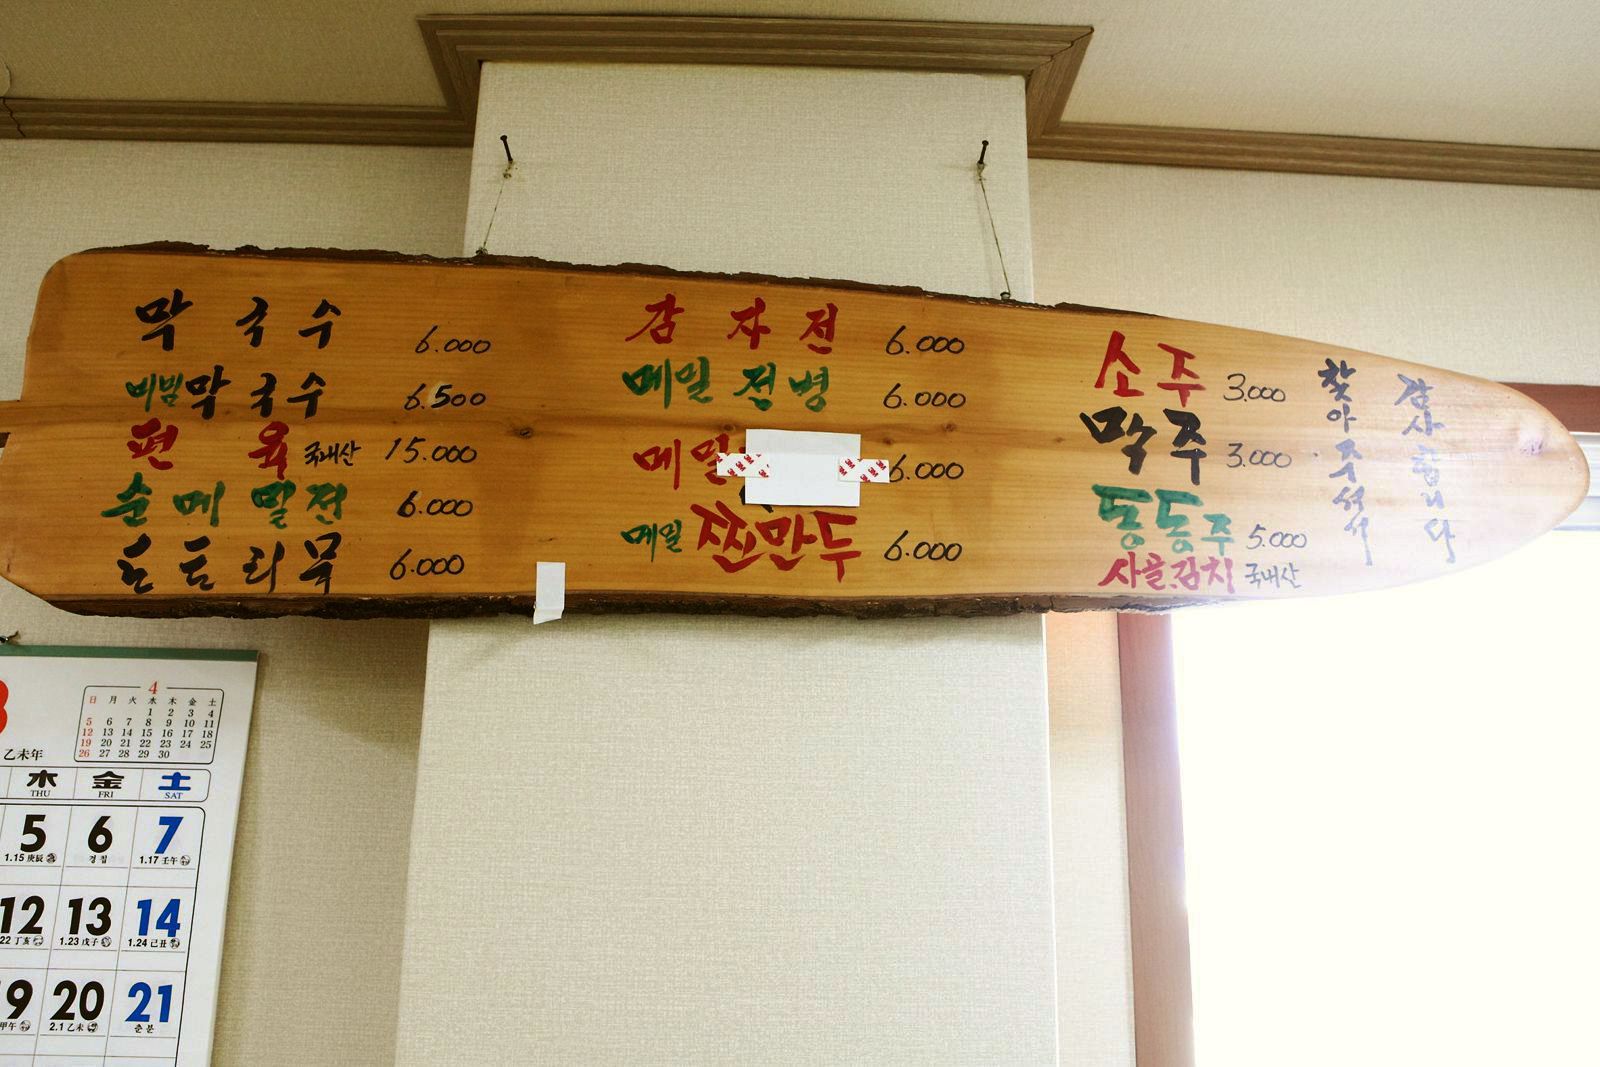 막국수 6.000
비빔막국수 6.500
편육 국내산 15.000
순메밀전 6.000
도토리묵 6.000
감자전 6.000
메밀전병 6.000
메밀 6.000
메밀 찐만두 6.000
소주 3.000
막주 3.000
동동주 5.000
사골.김치 국내산
찾아주셔서
감사합니다
4
日 月 火 水 木 金 土
1 2 3 4
5 6 7 8 9 10 11
12 13 14 15 16 17 18
19 20 21 22 23 24 25
26 27 28 29 30
乙未年
木 金 土
THU FRI SAT
5 6 7
1.15 庚辰 경칩 1.17 壬午
12 13 14
22 丁亥 1.23 戊子 1.24 己丑
19 20 21
甲午 2.1 乙未 춘분